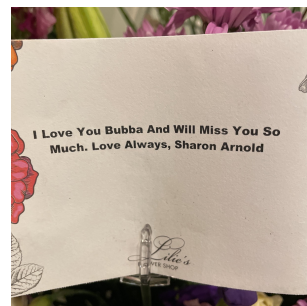 I Love You Bubba And Will Miss You So
Much. Love Always, Sharon Arnold
Lilie's
FLOWER SHOP